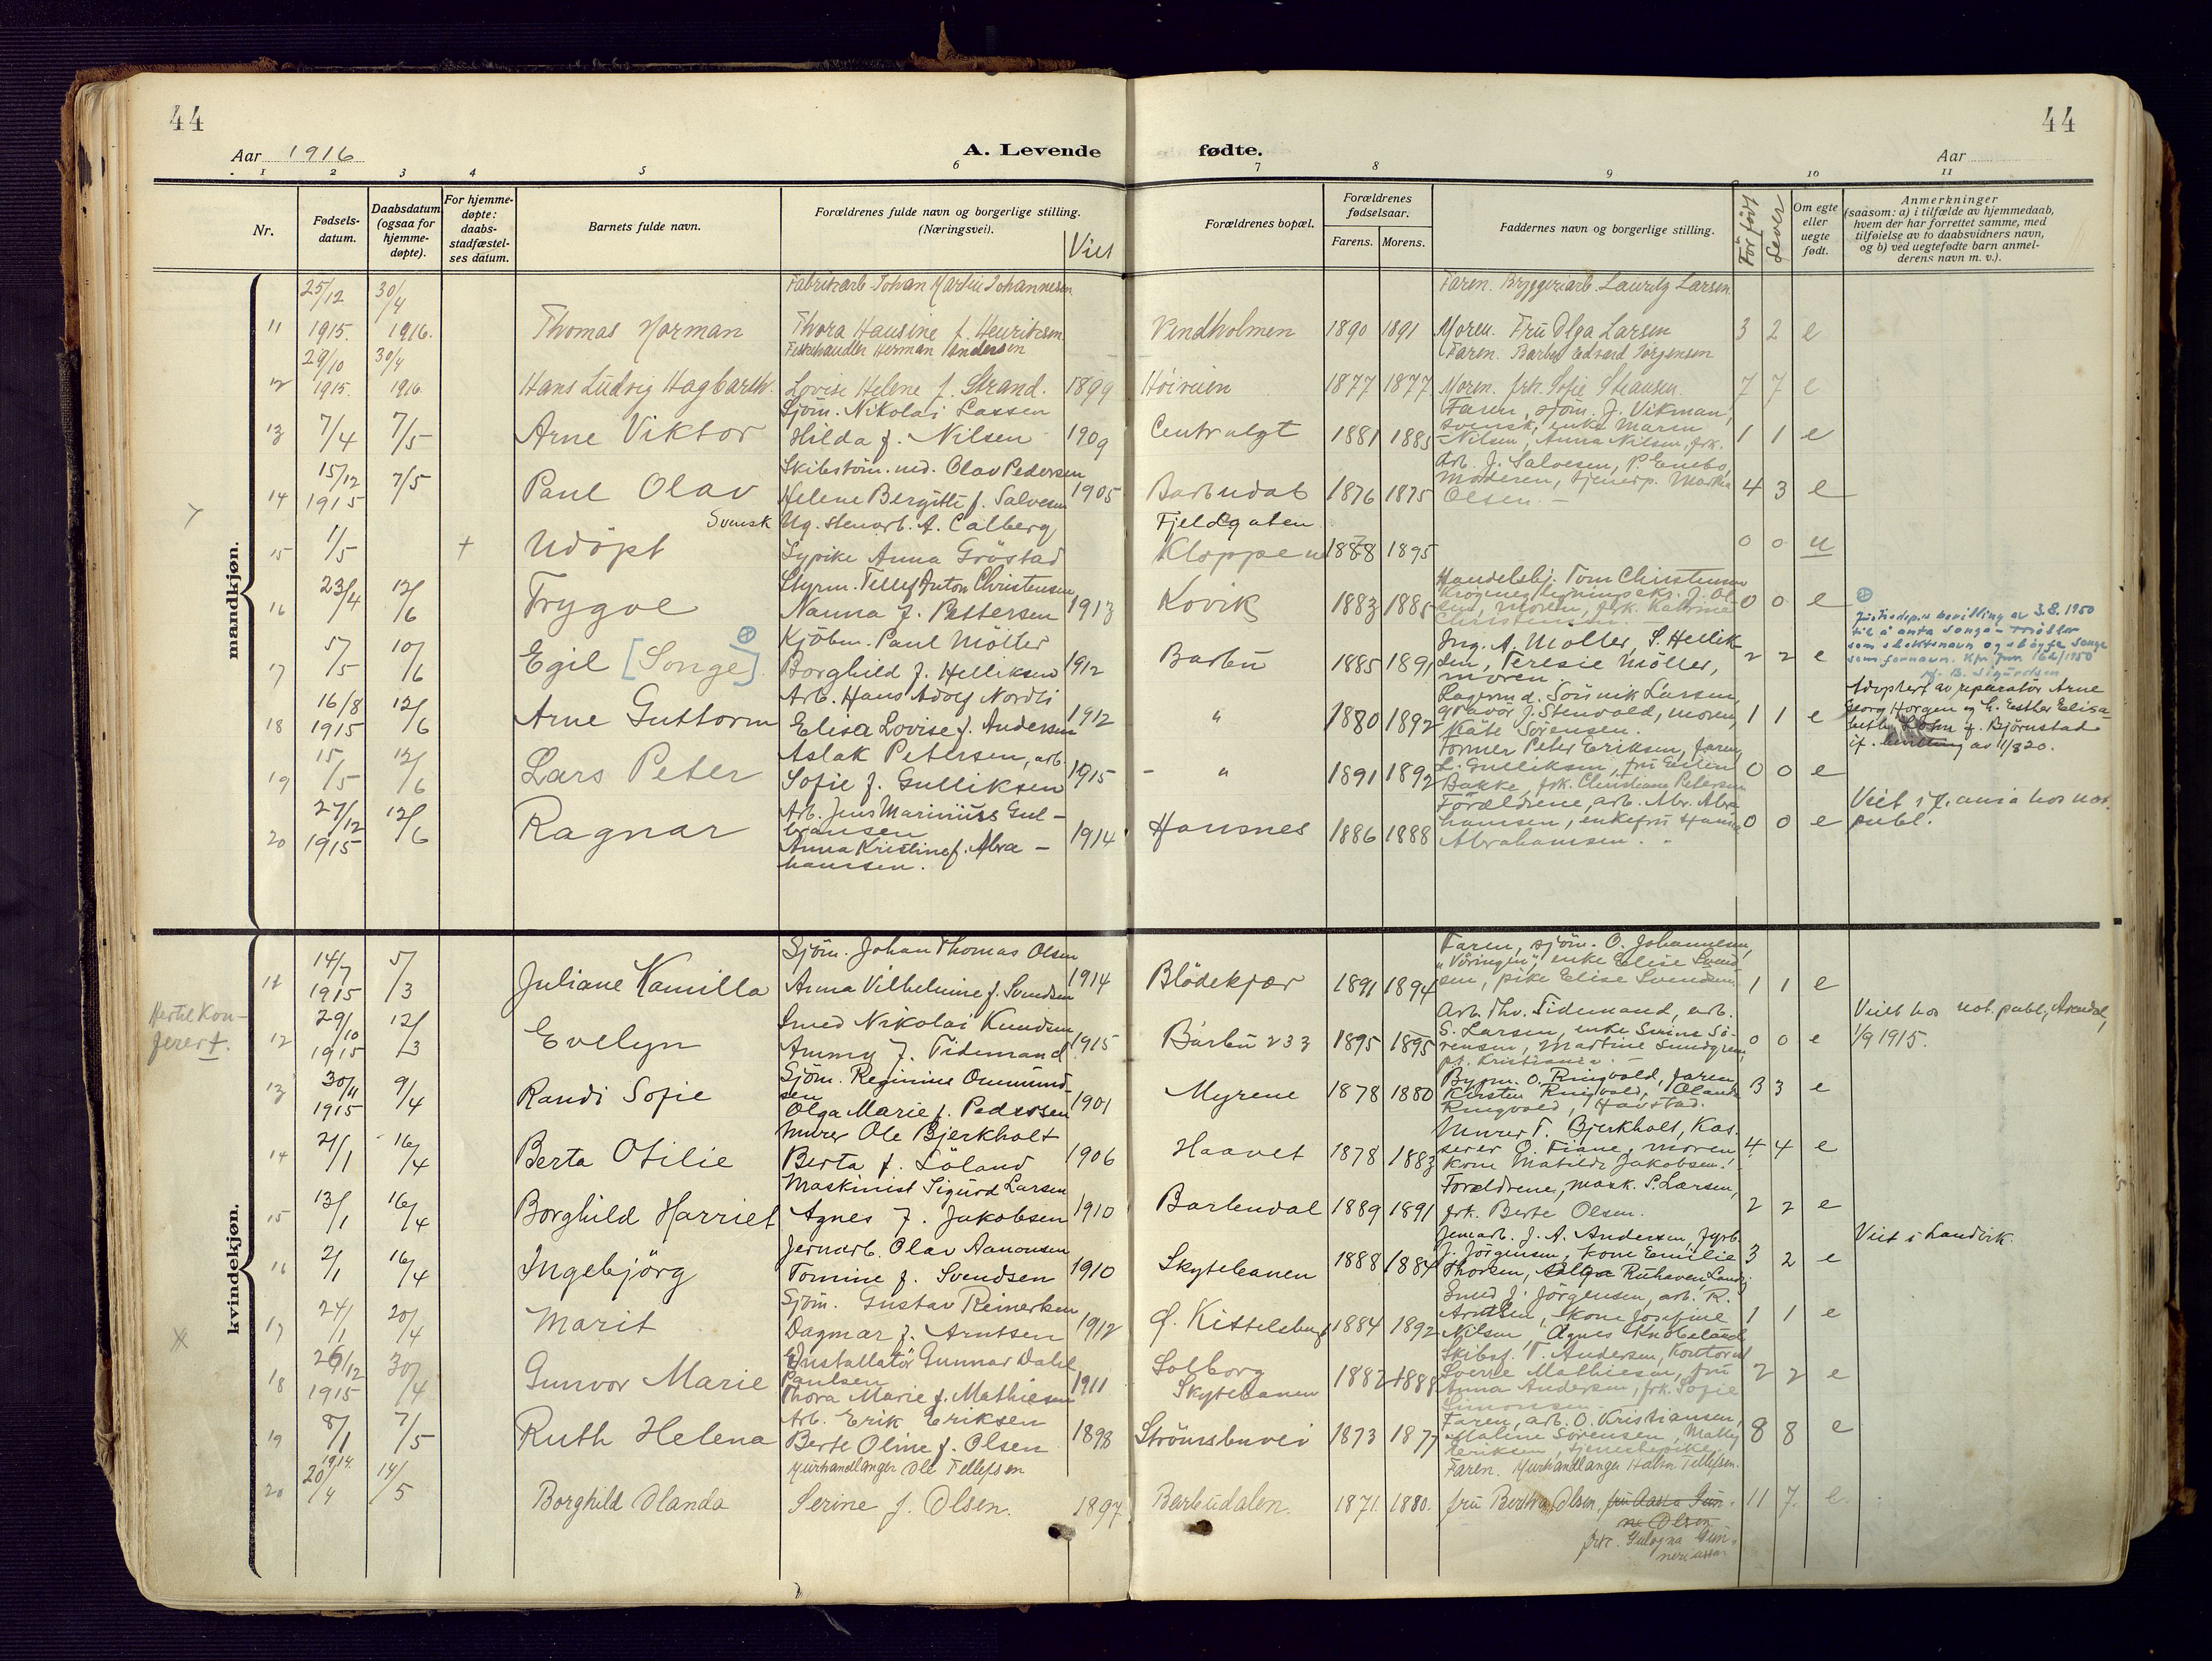 44
44
Aar 1916
A. Levende
fødte.
Aar
1 2 3 4 5 6 7 8 9 10 11
Nr.
Fødsels-
datum.
Daabsdatum
(ogsaa for
hjemme-
døpte).
For hjemme-
døpte:
daabs-
stadfæstel-
ses datum.
Barnets fulde navn.
Forældrenes fulde navn og borgerlige stilling.
(Næringsvei).
Viet
Forældrenes bopæl.
Forældrenes
fødselsaar.
Farens. Morens.
Faddernes navn og borgerlige stilling.
Før født
Lever
Om egte
eller
uegte
født.
Anmerkninger
(saasom: a) i tilfælde av hjemmedaab,
hvem der har forrettet samme, med
tilføielse av to daabsvidners navn,
og b) ved uegtefødte barn anmel-
derens navn m. v.).
mandkjøn.
25/12 30/4 Fabrikarb. Johan Martin Johannesen Faren. Bryggeriarb. Lauritz Larsen.
11 1915. 1916. Thomas Norman Thora Hansine f. Henriksen Vindholmen 1890 1891 Moren. Fru Olga Larsen 3 2 e
29/10 30/4 Fiskehandler Herman Andersen Faren. Barber Edvard Jørgensen
12 1915. 1916 Hans Ludvig Hagbarth. Lovise Helene f. Strand. 1899 Høiveien 1877 1877 Moren. frk. Sofie Hansen. 7 7 e
Sjöm. Nikolai Lassen Faren, sjöm. J. Vikman,
13 7/4 7/5 Arne Viktor Hilda f. Nilsen 1909 Centralgt 1881 1885 svensk, enke Maren
Nilsen, Anna Nilsen, frk. 1 1 e
15/12 7/5 Skibstöm.md. Olav Pedersen Arb. J. Salvesen, P. Enebo,
14 1915 Paul Olav Helene Bergitte f. Salvesen 1905 Barbudal 1876 1875 Moderen, tjenerp. Marka
Olsen. 4 3 e
Svensk Ug. stenarb. A. Calberg Fjeldgaten
15 1/5 + Udöpt Sypike Anna Gröstad Kloppen 1888 1895 0 0 u
Styrm. Tellef Anton Christensen Handelsbj. Tom Christensen
16 23/4 12/6 Trygve Nanna f. Pettersen 1913 Kovik 1883 1885 0 0 e
Christensen.
5/5 10/6 Kjöbm. Paul Möller Ing. A. Möller, S. Hellik-
17 Egil [Songe] Borghild f. Helliksen 1912 Barbu 1885 1891 sen, Teresie Möller,
moren. 2 2 e
Justisdeps bevilling av 3.8.1950
til å anta Songe-Møller
som slektsnavn og sløyfe Songe
som fornavn. Kfr. jnr 162/1950
B. Sigurdsen
16/8 12/6 Arb. Hans Adolf Nordli Lagermd. Sörnik Larsen,
18 1915 Arne Guttorm Elisa Lovise f. Andersen 1912 " 1880 1892 gravör J. Stenvold, moren,
Käte Sörensen. 1 1 e
Adoptert av reparatör Arne
Georg Horgen og h. Esther Elisa-
beth f. Björnstad
if. bevilling av 1/3 20.
15/5 12/6 Aslak Petersen, arb. Former Peter Eriksen, faren
19 Lars Peter Sofie f. Gulliksen 1915 - " 1891 1892 L. Gulliksen, fru Evelin
Bakke, frk. Christiane Petersen 0 0 e
27/12 12/6 Arb. Jens Marinius Gul-
bransen Forældrene, arb. Abr. Abra-
20 1915 Ragnar Anna Kristine f. Abra-
hamsen. 1914 Hausnes 1886 1888 hamsen, enkefru Hanna
Abrahamsen. 0 0 e Viet i X.ania hos not.
publ.
kvindekjøn.
14/7 5/3 Sjöm. Johan Thomas Olsen Faren, sjöm. O. Johannesen,
11 1915 Juliane Kamilla Anna Vilhelmine f. Svendsen 1914 Blödekjær 1891 1894 "Vöringen", enke Elise Svend-
sen, pike Elise Svendsen 1 1 e
Hertil Kon-
fereret.
29/10 12/3 Smed Nikolai Knudsen Arb. Thv. Tidemand, arb.
12 1915 Evelyn Ammy f. Tidemand 1915 Barbu 233 1895 1895 S. Larsen, enke Serine Sö-
rensen, Martine Lundgren
pt. Kristiania. 0 0 e
Viet hos not. publ, Arendal,
1/9 1915.
30/11 9/4 Sjöm. Reginius Ommund-
sen Bygm. O. Ringvold, faren,
13 1915 Randi Sofie Olga Marie f. Pedersen 1901 Myrene 1878 1880 Kirsten Ringvold, Olanda
Ringvold, Havstad. 3 3 e
Murer Ole Bjerkholt Murer T. Bjerkholt, Kas-
14 21/1 16/4 Berta Otilie Berta f. Löland 1906 Haavet 1878 1883 serer O. Fiane, moren
kone Matilde Jakobsen. 4 4 e
Maskinist Sigurd Larsen Forældrene, mask. S. Larsen,
15 13/1 16/4 Borghild Harriet Agnes f. Jakobsen 1910 Barbudal 1889 1891 frk. Berte Olsen. 2 2 e
Jernarb. Olav Aanonsen Jernarb. J. A. Andersen, fyrb.
16 2/1 16/4 Ingebjörg Tomine f. Svendsen 1910 Skytebanen 1888 1884 J. Jörgensen, kone Emilie
Thorsen, Olga Ruhaven, Landv. 3 2 e Viet i Landvik.
Sjöm. Gustav Reinertsen Smed J. Jörgensen, arb. R.
17 24/1 20/4 Marit Dagmar f. Arntsen 1912 Ø. Kittelsbugt 1884 1892 Arntsen, kone Josefine
Nilsen, Agnes Knobeland 1 1 e
26/12 30/4 Installatör Gunnar Dahl
Paulsen Skibsf. T. Andersen, Kontorist
18 1915 Gunvor Marie Thora Marie f. Mathiesen 1911 Solborg
Skytebanen 1882 1888 Sverre Mathiesen, fru
Anna Andersen, frk. Sofie
Simonsen. 2 2 e
Arb. Erik Eriksen Faren, arb. O. Kristiansen,
19 8/1 7/5 Ruth Helena Berte Oline f. Olsen 1898 Strömsbuvei 1873 1877 Maline Sörensen, Mally
Eriksen, tjenestepike 8 8 e
1914. Murhandlanger Ole Tellefsen Faren. Murhandlanger Halvor Tellefsen.
20 20/4 14/5 Borghild Olanda Serine f. Olsen. 1897 Barbudalen. 1871. 1880. fru Bertha Olsen, fru Aasta Gun-
ne Olsen 11 7. e.
frk. Gulogna Gun-
neriussen